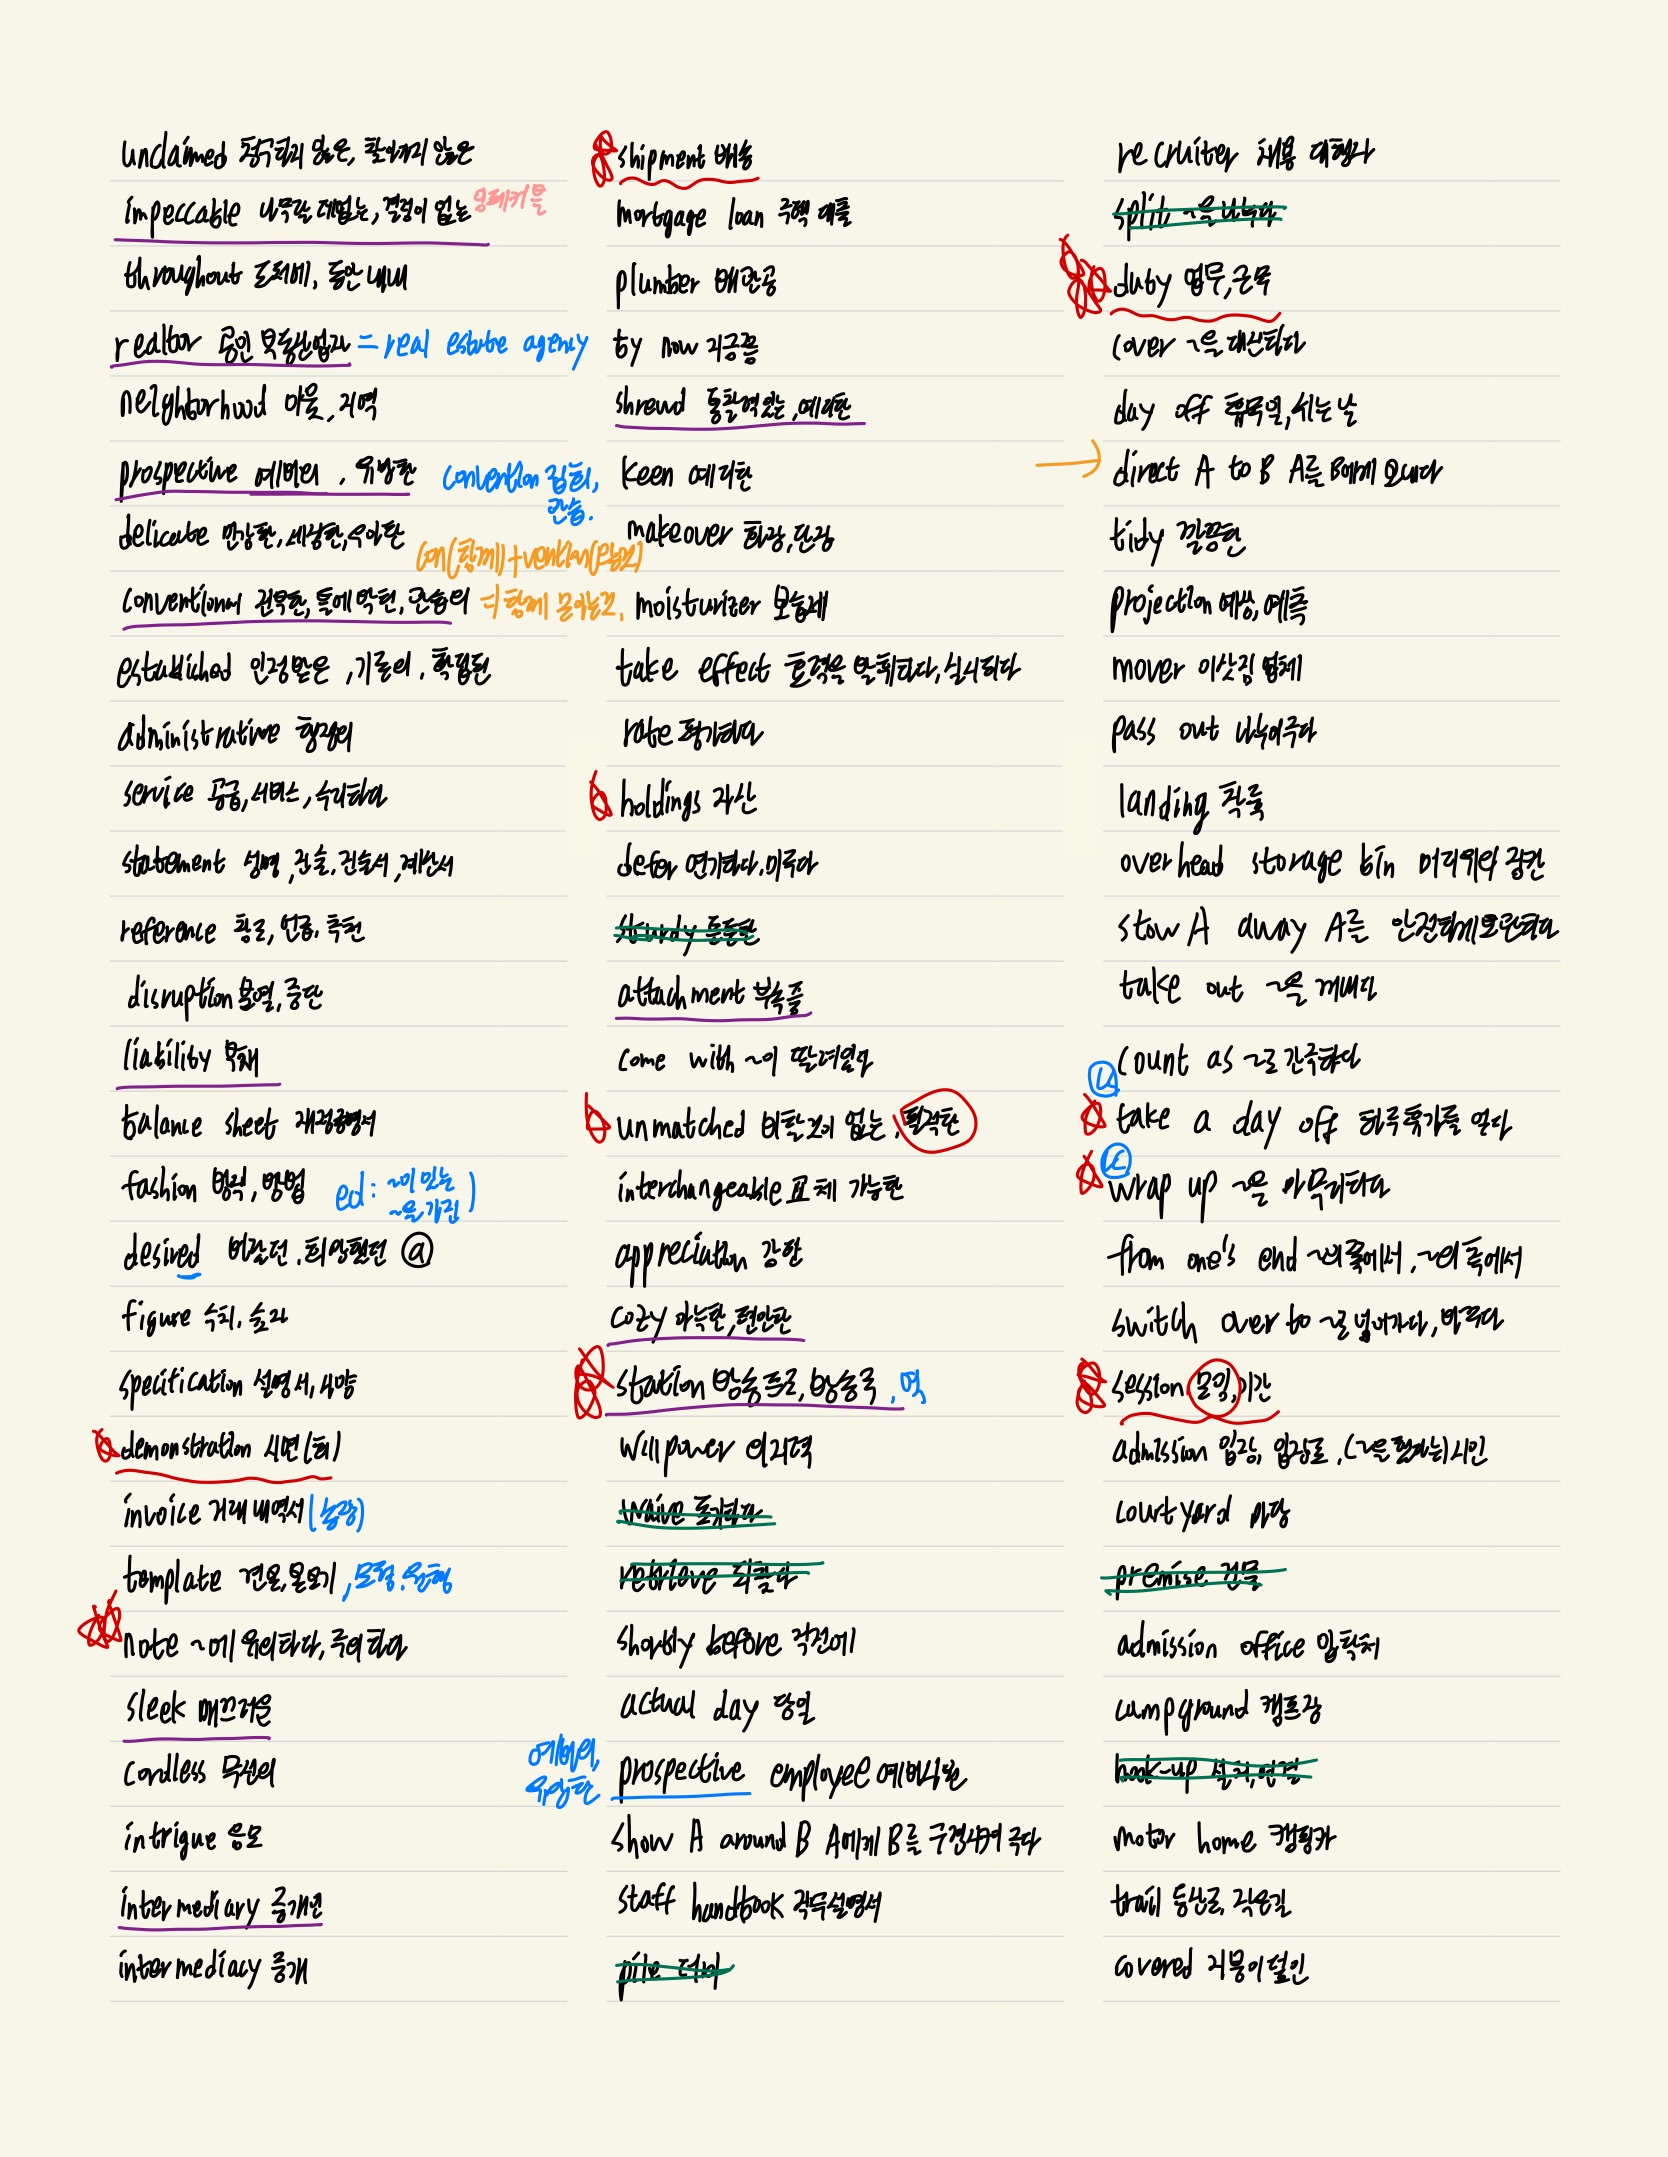 unclaimed 청구되지 않은, 찾아가지 않은
impeccable 나무랄 데없는, 결점이 없는 임페커블
throughout 도처에, 동안 내내
realtor 공인 부동산업자 = real estate agency
neighborhood 이웃, 지역
prospective 예비의, 유망한
convention 집회,
관습.
delicate 연약한, 섬세한, 우아한
con(함께)+vention(
conventional 진부한, 틀에 박힌, 관습의 ⇒ 함께 모이는것.
established 인정받은, 기존의, 확립된
administrative 행정의
service 공급, 서비스, 수리하다
statement 성명, 진술, 진술서, 계산서
reference 참고, 인용, 추천
disruption 분열, 중단
liability 부채
balance sheet 재정증명서
fashion 방식, 방법 ed: ~이 있는
~을 가진)
desired 바랐던, 희망했던 ⓐ
figure 수치, 숫자
specification 설명서, 사양
demonstration 시연(회)
invoice 거래 내역서 (송장)
template 견본, 본보기, 모형, 원형
note ~에 유의하다, 주의하다
sleek 매끄러운
cordless 무선의
intrigue 음모
intermediary 중개인
intermediacy 중개
shipment 배송
mortgage loan 주택 대출
plumber 배관공
by now 지금쯤
shrewd 통찰력있는, 예리한
keen 예리한
makeover 화장, 단장
moisturizer 보습제
take effect 효력을 발휘하다, 실시되다
rate 평가하다
holdings 자산
defer 연기하다, 미루다
sturdy 튼튼한
attachment 부속품
come with ~이 딸려있다
unmatched 비할 것이 없는, 필적한
interchangeable 교체 가능한
appreciation 감사
cozy 아늑한, 편안한
station 방송 프로, 방송국, 역
willpower 의지력
waive 포기하다
retrieve 되찾다
shortly before 직전에
actual day 당일
예비의,
유망한
prospective employee 예비직원
show A around B A에게 B를 구경시켜 주다
staff handbook 직무설명서
pile 더미
recruiter 채용 대행자
split ~을 나누다
duty 업무, 근무
cover ~을 대신하다
day off 휴무일, 쉬는 날
direct A to B A를 B에게 보내다
tidy 깔끔한
projection 예상, 예측
mover 이삿짐 업체
pass out 나눠주다
landing 착륙
overhead storage bin 머리위의 짐칸
stow A away A를 안전하게보관하다
take out ~을 꺼내다
count as ~로 간주하다
take a day off 하루휴가를 얻다
wrap up ~을 마무리하다
from one's end ~의 쪽에서, ~의 측에서
switch over to ~로 넘어가다, 바꾸다
session 모임, 기간
admission 입장, 입장료, (~을 했다는)시인
courtyard 마당
premise 건물
admission office 입학처
campground 캠프장
hook-up 설치, 연결
motor home 캠핑카
trail 등산로, 작은길
covered 지붕이 덮인